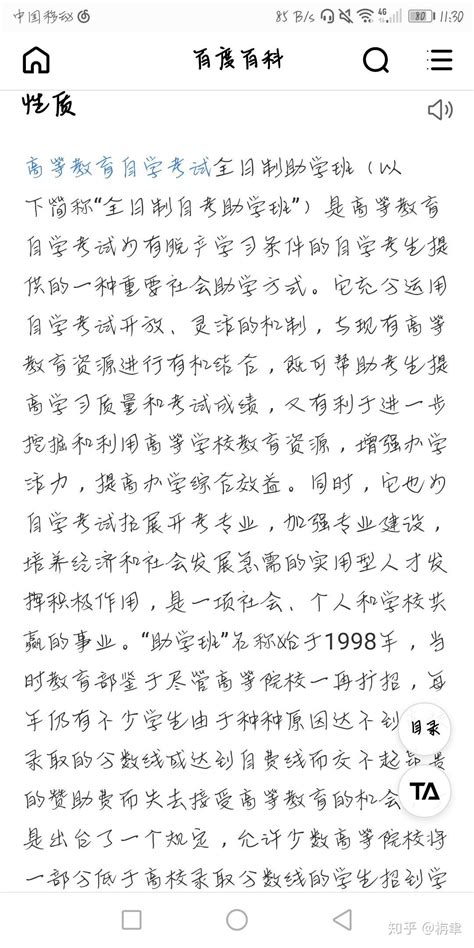 中国移动 85 B/s 4G 80 11:30
百度百科
性质
高等教育自学考试全日制助学班（以
下简称“全日制自考助学班”）是高等教育
自学考试为有脱产学习条件的自学考生提
供的一种重要社会助学方式。它充分运用
自学考试开放、灵活的机制，与现有高等
教育资源进行有机结合，既可帮助考生提
高学习质量和考试成绩，又有利于进一步
挖掘和利用高等学校教育资源，增强办学
活力，提高办学综合效益。同时，它也为
自学考试拓展开考专业，加强专业建设，
培养经济和社会发展急需的实用型人才发
挥积极作用，是一项社会、个人和学校共
赢的事业。“助学班”名称始于1998年，当
时教育部鉴于尽管高等院校一再扩招，每
年仍有不少学生由于种种原因达不到
目录
录取的分数线或达到自费线而交不起昂贵
的赞助费而失去接受高等教育的机会
TA
是出台了一个规定，允许少数高等院校将
一部分低于高校录取分数线的学生招到学
知乎 @梼聿